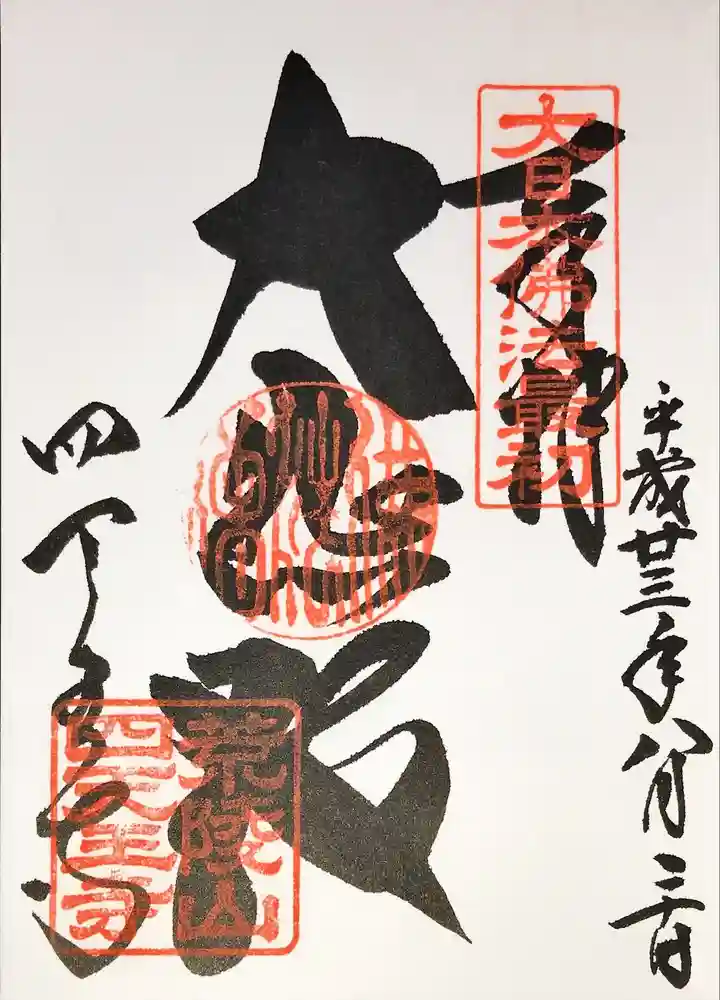 平成廿三年八月
奉拝
大日本佛法最初
大悲殿
四天王寺
荒陵山
四天王寺